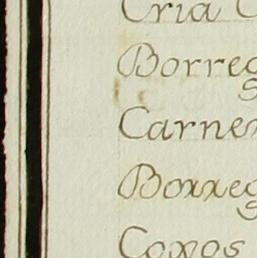 Cria C
Borreg
Carner
Borreg
Copos